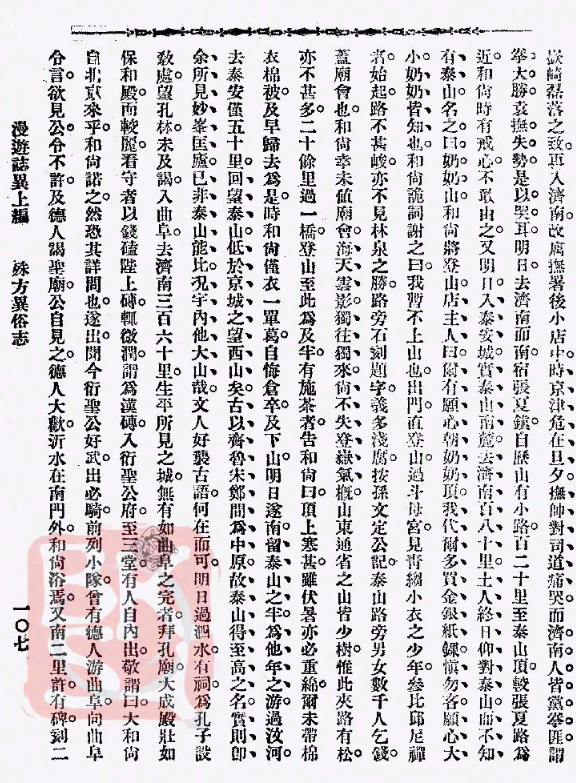 嶔崎磊落之致再入濟南故廡撫署後小店中時京津危在旦夕撫帥對司道痛哭而濟南人皆黨拳匪謂
拳大勝袁撫失勢是以哭耳明日去濟南而南宿張夏鎮自歷山有小路百二十里至泰山頂較張夏路爲
近和尙時有戒心不敢由之又明日入泰安城實泰山南麓去濟南百八十里土人終日仰對泰山而不知
有泰山名之曰奶奶山和尙將登山店主人曰爾有願心朝奶奶頂我代爾多買金銀紙錁愼勿吝願心大
小奶奶皆知也和尙詭詞謝之曰我暫不上山也出門直登山過斗母宮見靑縐小衣之少年參比邱尼禪
者始起路不甚峻亦不見林泉之勝路旁石刻題字義多淺腐按孫文定公記泰山路旁男女數千人乞錢
蓋廟會也和尙幸未値廟會海天雲影獨往獨來尙不失登緣氣槪山東通省之山皆少樹惟此夾路有松
亦不甚多二十餘里過一橋登山至此爲及半有施茶者告和尙曰頂上寒甚雖伏暑亦必重綿爾未帶棉
衣棉被及早歸去爲是時和尙僅衣一單葛自悔倉卒及下山明日遂南留泰山之半爲他年之游過汶河
去泰安僅五十里回望泰山低於京城之望西山矣古以齊魯宋鄭間爲中原故泰山得至高之名實則卽
余所見妙峯匡廬已非泰山能比况宇內他大山哉文人好襲古語何在而可明日過泗水有祠爲孔子設
敎處望孔林未及謁入曲阜去濟南三百六十里生平所見之城無有如曲阜之完者拜孔廟大成殿壯如
保和殿而較麗看守者以錢磕陛上磚輒微潤謂爲漢磚入衍聖公府至三堂有人自內出敬謂曰大和尙
自北京來乎和尙諾之然恐其詳問也遂出聞今衍聖公好武出必騎前列小隊曾有德人游曲阜向曲阜
令言欲見公令不許及德人謁聖廟公自見之德人大歡沂水在南門外和尙浴焉又南二里許有碑刻二
漫遊誌異上編　殊方異俗志
一〇七